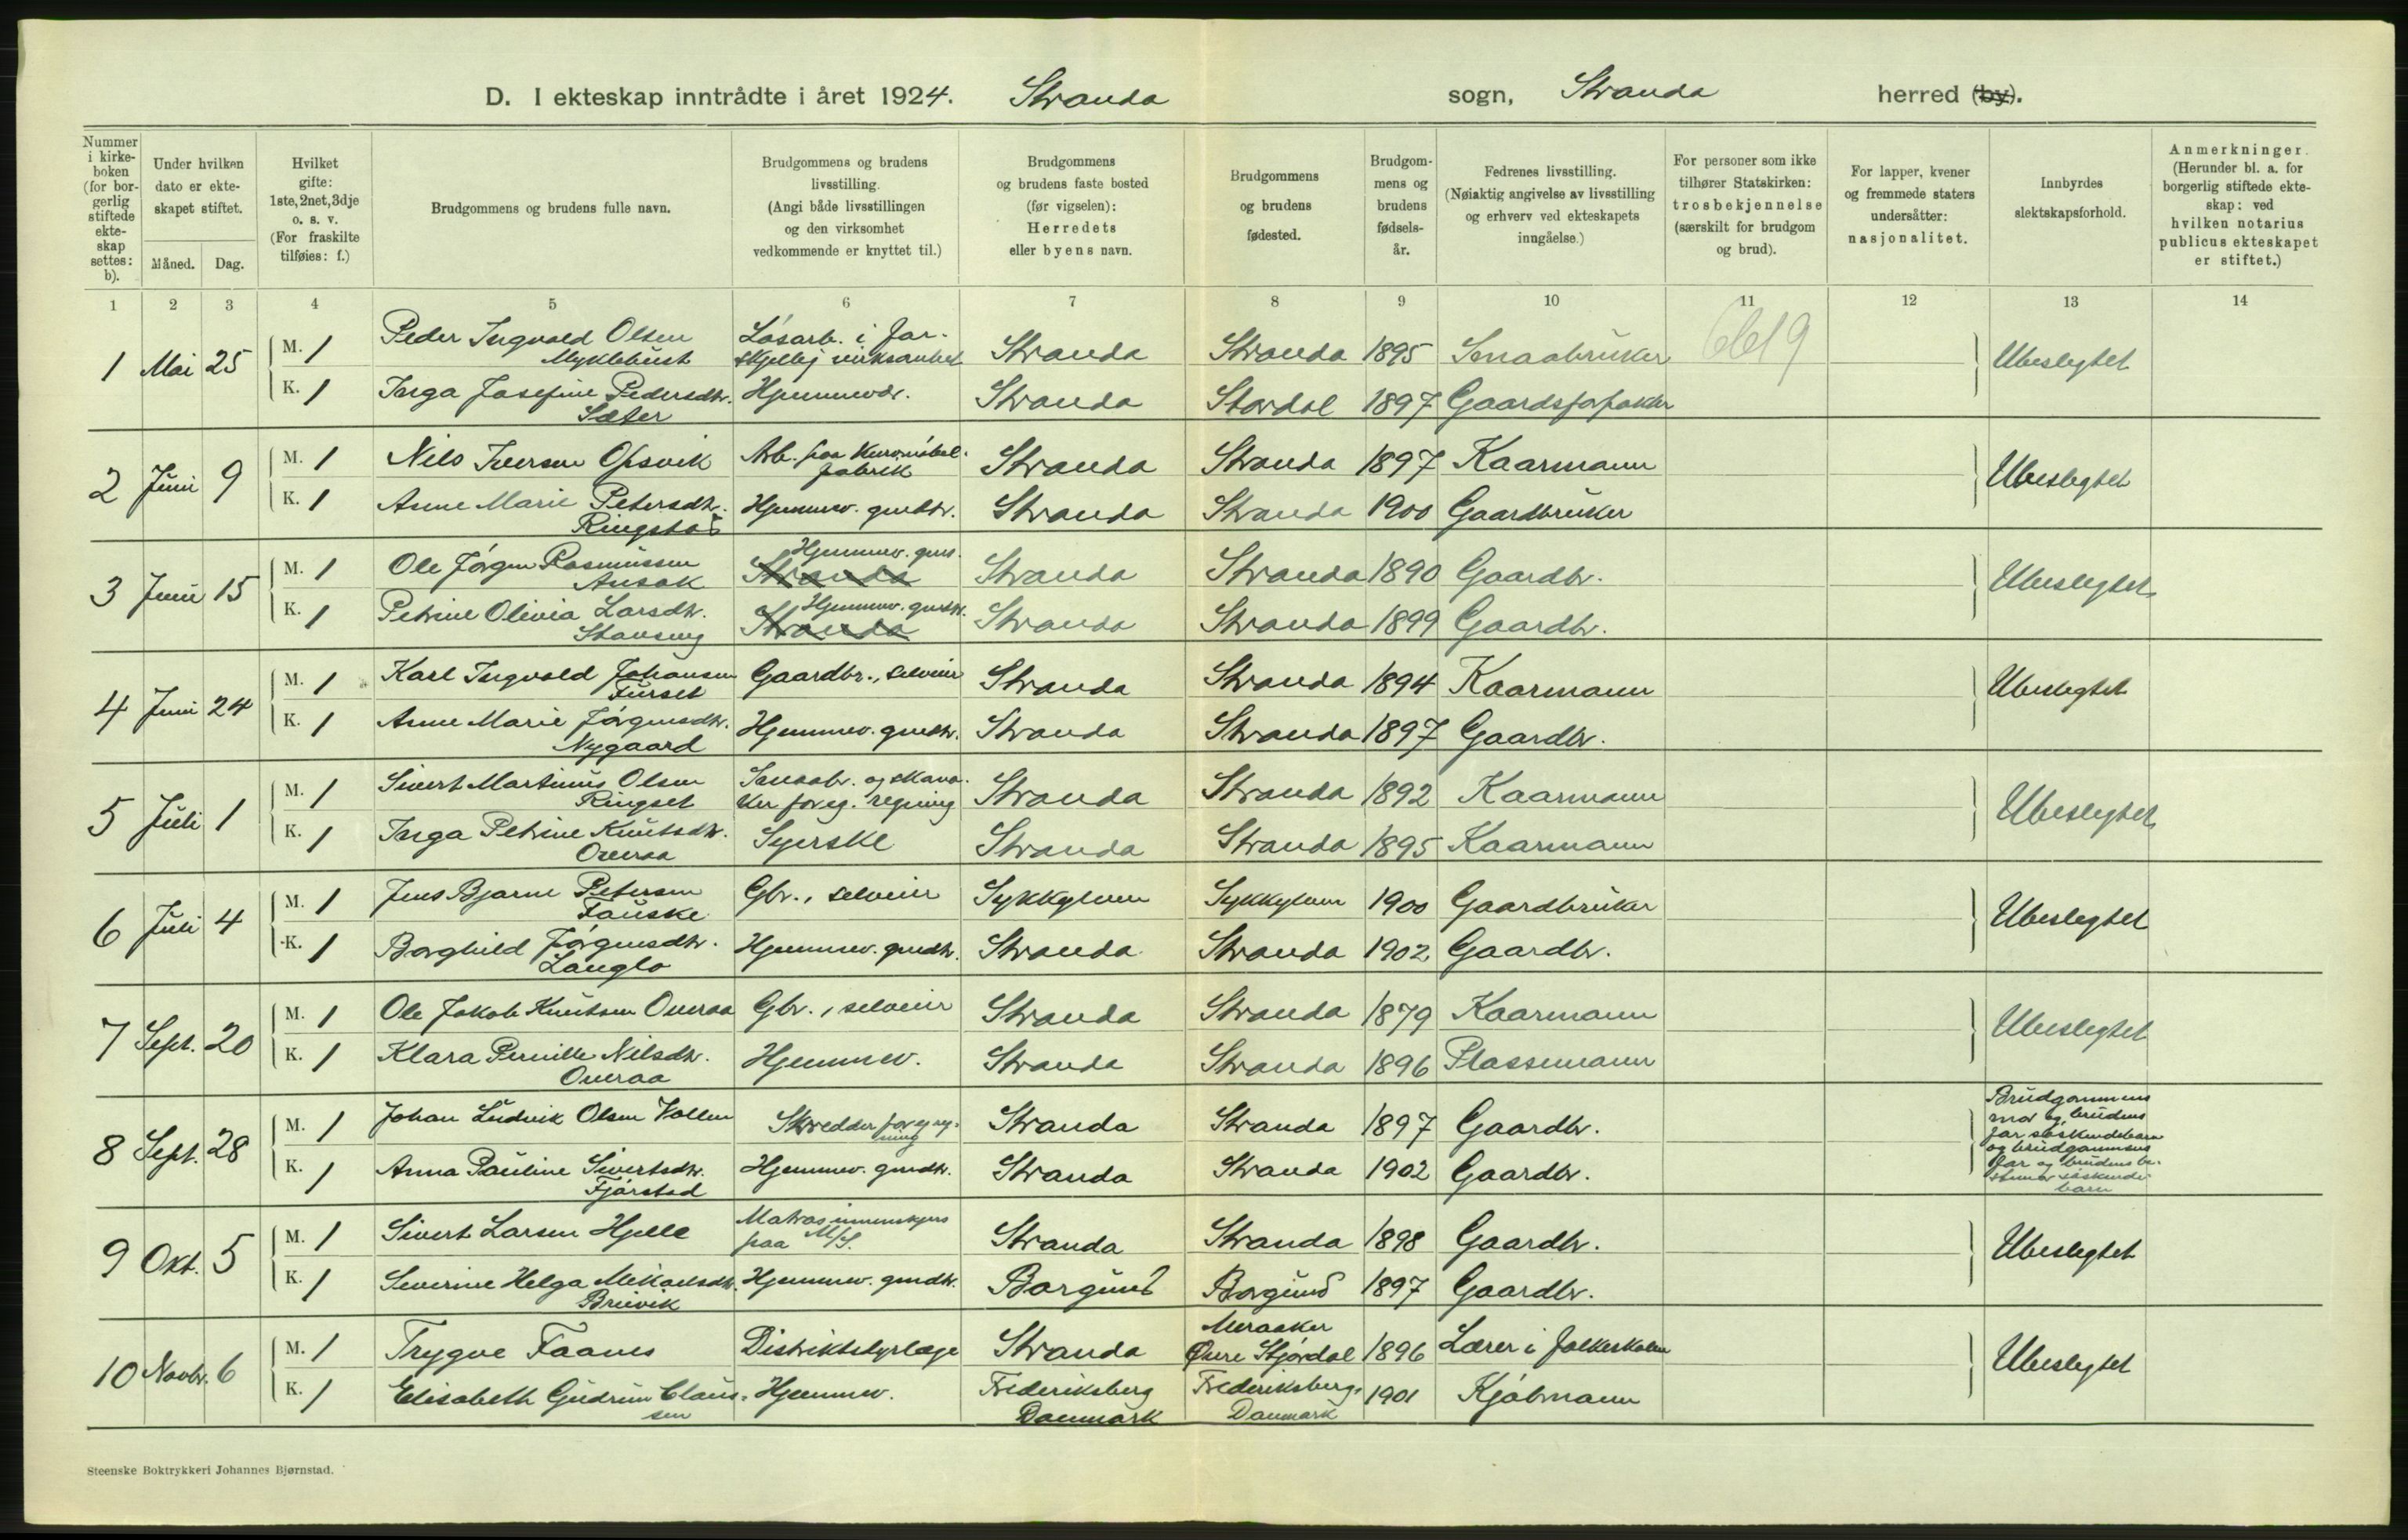 D. I ekteskap inntrådte i året 1924. Stranda sogn, Stranda herred (by).
Nummer i kirkeboken (for borgerlig stiftede ekteskap settes: b).
Under hvilken dato er ekteskapet stiftet.
Måned. Dag.
Hvilket gifte: 1ste, 2net, 3dje o. s. v. (For fraskilte tilføies: f.)
Brudgommens og brudens fulle navn.
Brudgommens og brudens livsstilling. (Angi både livsstillingen og den virksomhet vedkommende er knyttet til.)
Brudgommens og brudens faste bosted (før vigselen): Herredets eller byens navn.
Brudgommens og brudens fødested.
Brudgommens og brudens fødselsår.
Fedrenes livsstilling. (Nøiaktig angivelse av livsstilling og erhverv ved ekteskapets inngåelse.)
For personer som ikke tilhører Statskirken: trosbekjennelse (særskilt for brudgom og brud).
For lapper, kvener og fremmede staters undersåtter: nasjonalitet.
Innbyrdes slektskapsforhold.
Anmerkninger. (Herunder bl. a. for borgerlig stiftede ekteskap: ved hvilken notarius publicus ekteskapet er stiftet.)
1 2 3 4 5 6 7 8 9 10 11 12 13 14
1 Mai 25 M. 1 Peder Ingvald Olsen Myklebust Løsarb. i forskjellig virksomhet Stranda Stranda 1895 Smaabruker Ubeslegtet
K. 1 Inga Josefine Pedersdtr. Sæter Hjemmevær. Stranda Stordal 1897 Gaardsforpakter
2 Juni 9 M. 1 Nils Iversen Opsvik Arb. paa kurvmøbelfabrik Stranda Stranda 1897 Kaarmann Ubeslegtet
K. 1 Anne Marie Petersdtr. Ringstad Hjemmev. gmdtr. Stranda Stranda 1900 Gaardbruker
3 Juni 15 M. 1 Ole Jørgen Rasmussen Ansok Hjemmev. gms. Stranda Stranda Stranda 1890 Gaardbr. Ubeslegtet
K. 1 Petrine Olivia Larsdtr. Stavseng Hjemmev. gmdtr. Stranda Stranda Stranda 1899 Gaardbr.
4 Juni 24 M. 1 Karl Ingvald Johansen Furset Gaardbr., selveier Stranda Stranda 1894 Kaarmann Ubeslegtet
K. 1 Anne Marie Jørgensdtr. Nygaard Hjemmev. gmdtr. Stranda Stranda 1897 Gaardbr.
5 Juli 1 M. 1 Sivert Martinus Olsen Ringset Smaabr. og skomaker for eg. regning Stranda Stranda 1892 Kaarmann Ubeslegtet
K. 1 Inga Petrine Knutsdtr. Overaa Syerske Stranda Stranda 1895 Kaarmann
6 Juli 4 M. 1 Jens Bjarne Petersen Fauske Gbr., selveier Sykkylven Sykkylven 1900 Gaardbruker Ubeslegtet
K. 1 Borghild Jørgensdtr. Langlo Hjemmev. gmdtr. Stranda Stranda 1902 Gaardbr.
7 Sept. 20 M. 1 Ole Jakob Knutsen Overaa Gbr., selveier Stranda Stranda 1879 Kaarmann Ubeslegtet
K. 1 Klara Pernille Nilsdtr. Overaa Hjemmev. Stranda Stranda 1896 Plassemann
8 Sept. 28 M. 1 Johan Ludvik Olsen Vollen Skredder for eg. regning Stranda Stranda 1897 Gaardbr. Brudgommens mor og brudens far søskendebarn og brudgommens far og brudens søskendebarn
K. 1 Anna Pauline Sivertsdtr. Fjørstad Hjemmev. gmdtr. Stranda Stranda 1902 Gaardbr.
9 Okt. 5 M. 1 Sivert Larsen Hjelle Matros paa M/S. Stranda Stranda 1898 Gaardbr. Ubeslegtet
K. 1 Severine Helga Mikaelsdtr. Breivik Hjemmev. gmdtr. Borgund Borgund 1897 Gaardbr.
10 Novbr. 6 M. 1 Trygve Faanes Distriktsdyrlæge Stranda Meraaker Øvre Stjørdal 1896 Lærer i folkeskolen Ubeslegtet
K. 1 Elisabeth Gudrun Claussen Hjemmev. Frederiksberg Danmark Frederiksberg, Danmark 1901 Kjøbmann
Steenske Boktrykkeri Johannes Bjørnstad.